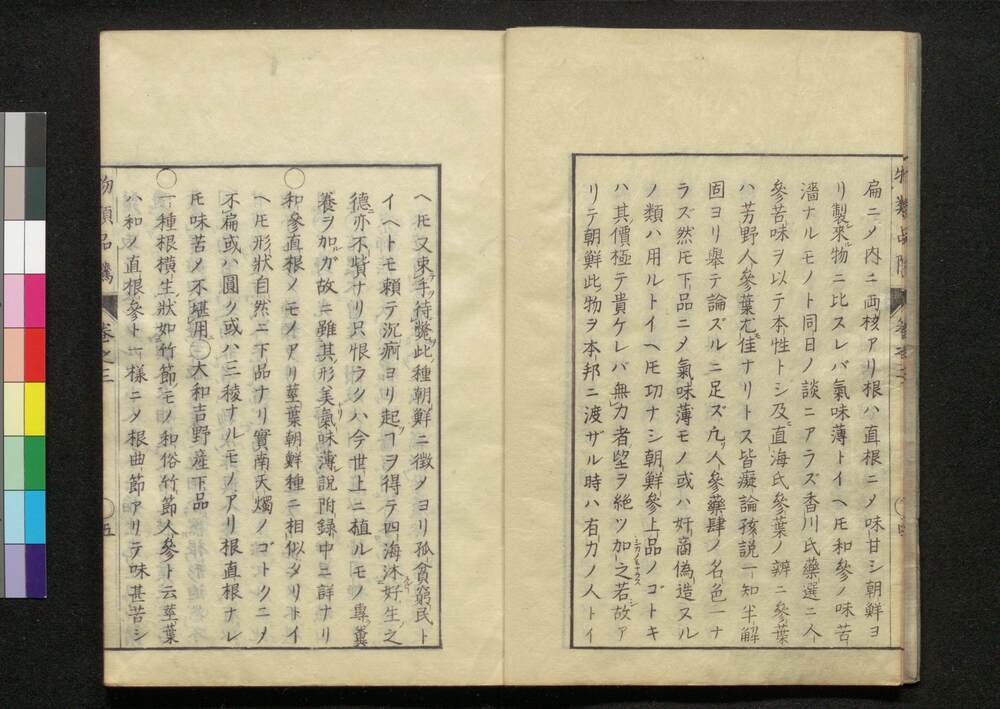 扁ニメ内ニ両核アリ根ハ直根ニメ味甘シ朝鮮ヨ
リ製來物ニ比スレバ氣味薄トイヘ𪜈和參ノ味苦
濇ナルモノト同日ノ談ニアラズ香川氏藥選ニ人
參苦味ヲ以テ本性トシ及直海氏參葉ノ辨ニ參葉
ハ芳野人參葉尤佳ナリトス皆癡論孩說一知半解
固ヨリ舉テ論ズルニ足ズ凡人參藥肆ノ名色一ナ
ラズ然𪜈下品ニメ氣味薄モノ或ハ奸商偽造スル
ノ類ハ用ルトイヘ𪜈功ナシ朝鮮參上品ノゴトキ
ハ其價極テ貴ケレバ無力者望ヲ絶ツ加之若故ア
リテ朝鮮此物ヲ本邦ニ渡ザル時ハ有力ノ人トイ
物類品隲 卷之三 四
ヘ𪜈又束手待斃此種朝鮮ニ徴メヨリ孤貧窮民ト
イヘトモ頼テ沉痾ヨリ起ヿヲ得テ四海沐好生之
德亦不貲ナリ只恨ラクハ今世上ニ植ルモノ專糞
養ヲ加ガ故ニ雖其形美氣味薄說附録中ニ詳ナリ
〇和參直根ノモノアリ莖葉朝鮮種ニ相似タリトイ
ヘ𪜈形狀自然ニ下品ナリ實南天燭ノゴトクニメ
不扁或ハ圓ク或ハ三稜ナルモノアリ根直根ナレ
𪜈味苦メ不堪用〇大和吉野産下品
〇一種根横生狀如竹節モノ和俗竹節人參ト云莖葉
ハ和ノ直根參ト一樣ニメ根曲節アリテ味甚苦シ
物類品隲 卷之三 五